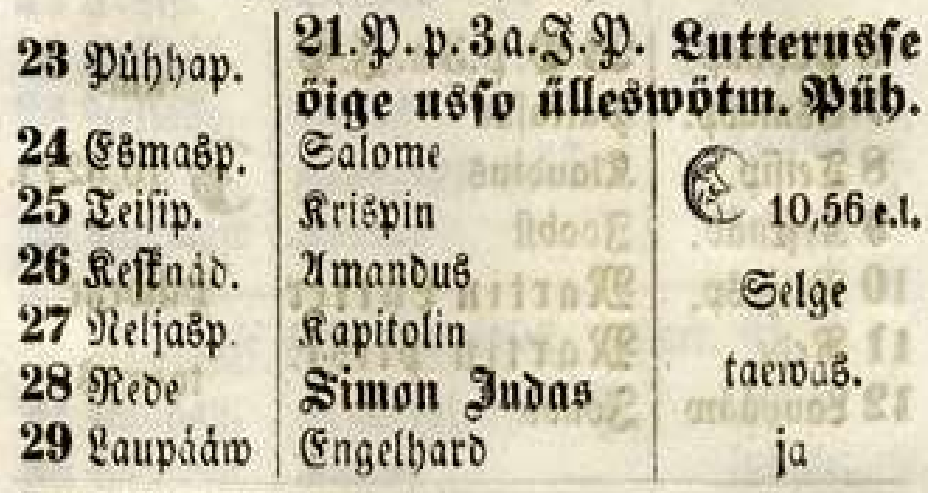 23 Pühhap. 21. P. p. 3 a. J. P. Lutterusse
öige usso ülleswötm. Püh.
24 Esmasp. Salome
25 Teisip. Krispin 10,56 e.l.
26 Kesknäd. Amandus Selge
27 Neljasp. Kapitolin
28 Rede Simon Judas taewas.
29 Laupääw Engelhard ja